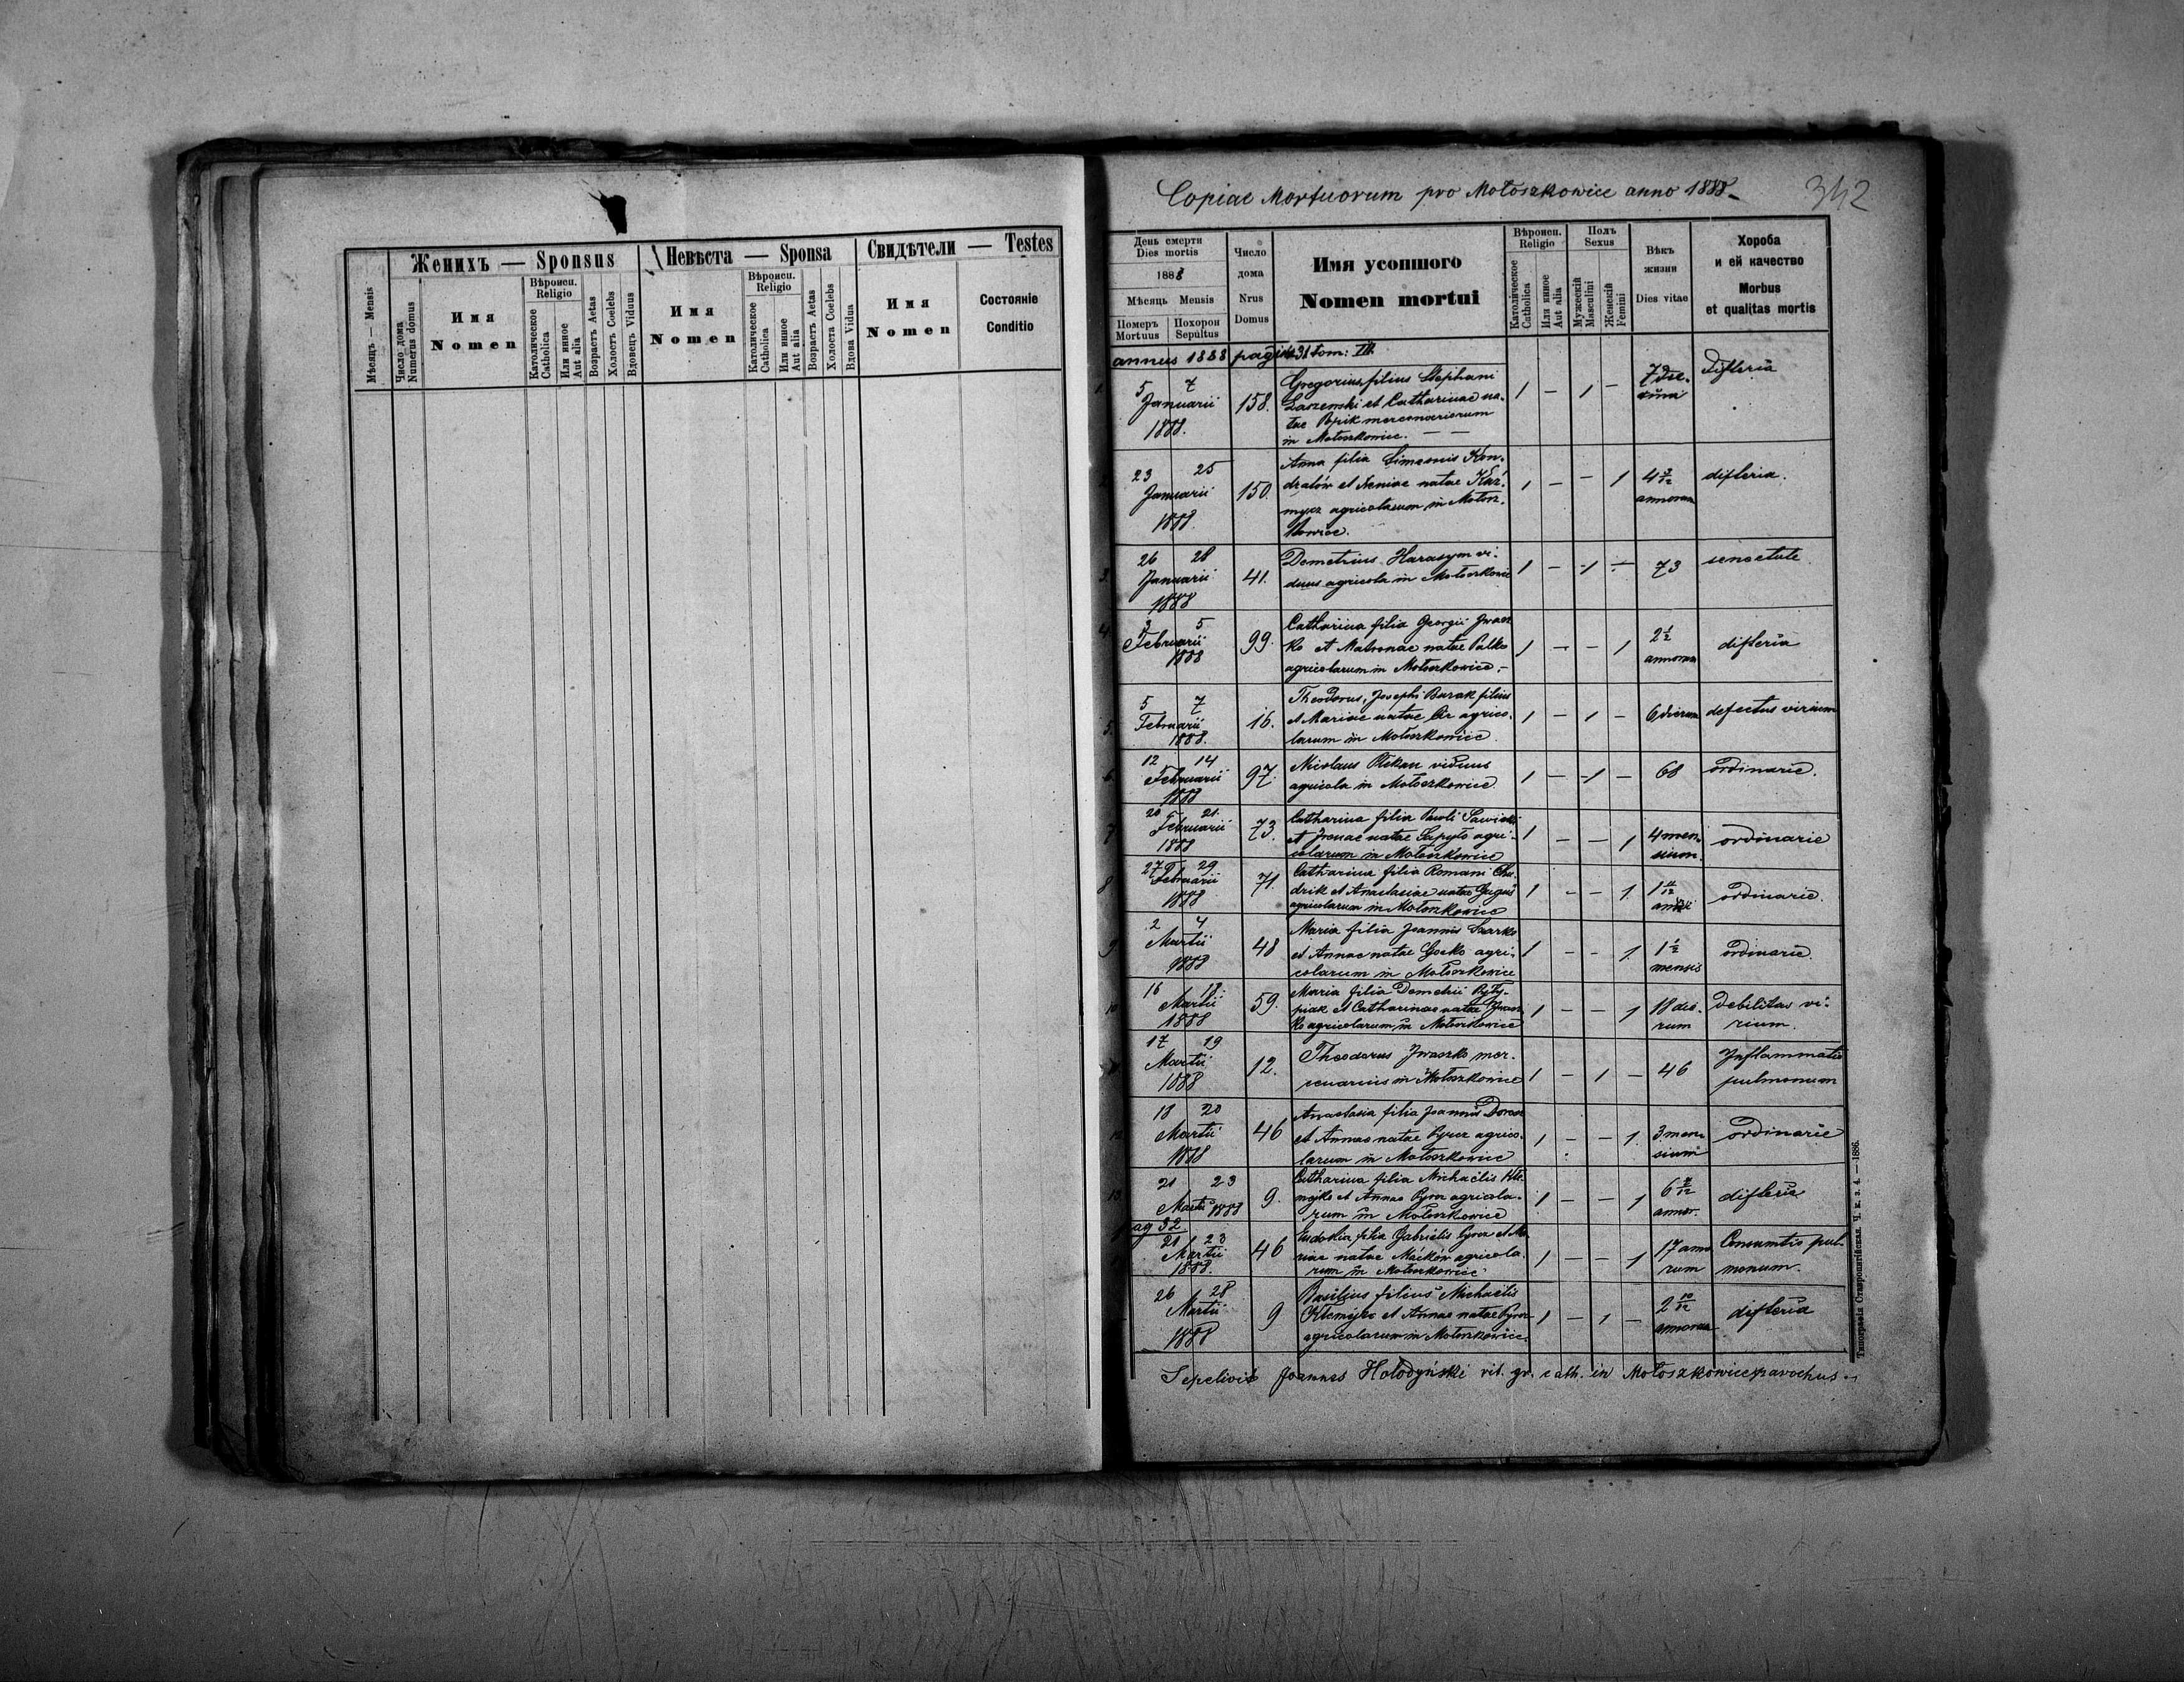 Женихъ — Sponsus
Невѣста — Sponsa
Свидѣтели — Testes
Мѣсяць — Mensis
Число дома
Numerus domus
Имя
Nomen
Вѣроисп.
Religio
Католическое
Catholica
Или инное
Aut alia
Возрастъ Aetas
Холостъ Coelebs
Вдовець Viduus
Имя
Nomen
Вѣроисп.
Religio
Католическое
Catholica
Или инное
Aut alia
Возрастъ Aetas
Холоста Coelebs
Вдова Vidua
Имя
Nomen
Состояніе
Conditio
Copiae Mortuorum pro Mołoszkowice anno 1888
342
День смерти
Dies mortis
1888
Мѣсяць Mensis
Померъ
Mortuus
Похорон
Sepultus
Число
дома
Nrus
Domus
Имя усопшого
Nomen mortui
Вѣроисп.
Religio
Католическое
Catholica
Или инное
Aut alia
Полъ
Sexus
Мужескій
Masculini
Женскій
Femini
Вѣкъ
жизни
Dies vitae
Хороба
и ей качество
Morbus
et qualitas mortis
annus 1888 pagina 31 tom: III.
1.
5 7
Januarii
1888.
158.
Gregorius filius Stephani
et Catharinae na-
tae Popik mercenariorum
in Mołoszkowice.
1 — 1 —
7
difteria
23 25
Januarii
1888.
150.
Anna filia Simeonis Kon-
dratów et Xeniae natae
agricolarum in Mołosz-
kowice.
1 — — 1
4 7/12
annorum
difteria.
3.
26 28
Januarii
1888
41.
Demetrius Harasym vi-
duus agricola in Mołoszkowice
1 — 1 —
73
senectute
4.
3 5
Februarii
1888
99.
Catharina filia Georgii Iwasz
ko et Matronae natae Palko
agricolarum in Mołoszkowice.
1 — — 1
2 1/2
annorum
difteria
5.
5 7
Februarii
1888.
16.
Theodorus, Josephi Burak filius
et Mariae natae Cir agrico-
larum in Mołoszkowice.
1 — 1 —
6 dierum
defectus virium
6.
12 14
Februarii
1888
97.
Nicolaus viduus
agricola in Mołoszkowice
1 — 1 —
68
ordinarie.
7
20 21.
Februarii
1888
73.
Catharina filia Pauli Sawicki
et natae Sapyto agri-
colarum in Mołoszkowice
1 — — 1
4 men-
sium.
ordinarie
8
27 29
Februarii
1888
71.
Catharina filia Romani
et Anastasiae natae
agricolarum in Mołoszkowice
1 — — 1
1 11/12
ordinarie.
9
2 4
Martii
1888
48
Maria filia Joannis
et Annae natae agri-
colarum in Mołoszkowice
1 — — 1
1 1/2
mensis
ordinarie
10
16 18
Martii
1888
59.
Maria filia Demetrii
et Catharinae natae Iwasz
ko agricolarum in Mołoszkowice
1 — — 1
18 die-
rum
debilitas vi-
rium.
17 19
Martii
1888
12.
Theodorus Iwaszko mer-
cenarius in Mołoszkowice
1 — 1 —
46
Inflammatio
pulmonum
12.
18 20
Martii
1888
46
Anastasia filia Joannis Dorosz
et Annae natae Pyroz agrico-
larum in Mołoszkowice
1 — — 1
3 men-
sium
ordinarie
13.
21 23
Martii 1888
9.
Catharina filia Michaelis Kle-
mejko et Annae Pyroz agricola-
rum in Mołoszkowice
1 — — 1
6 8/12
annor.
difteria
pag 32
21 23
Martii
1888.
46
Eudokia filia Gabrielis Pyroz et Ma-
riae natae Maćków agricola-
rum in Mołoszkowice
1 — — 1
17 anno
rum
Consumtio pul-
monum.
26 28
Martii
1888
9
Basilius filius Michaelis
Klemejko et Annae natae Pyroz
agricolarum in Mołoszkowice.
1 — 1 —
2 10/12
annorum
difteria
Sepelivit Joannes Hołodyński rit. gr. cath. in Mołoszkowice parochus.
Типографія Ставропигійская. Ч. к. з. 4. — 1886.